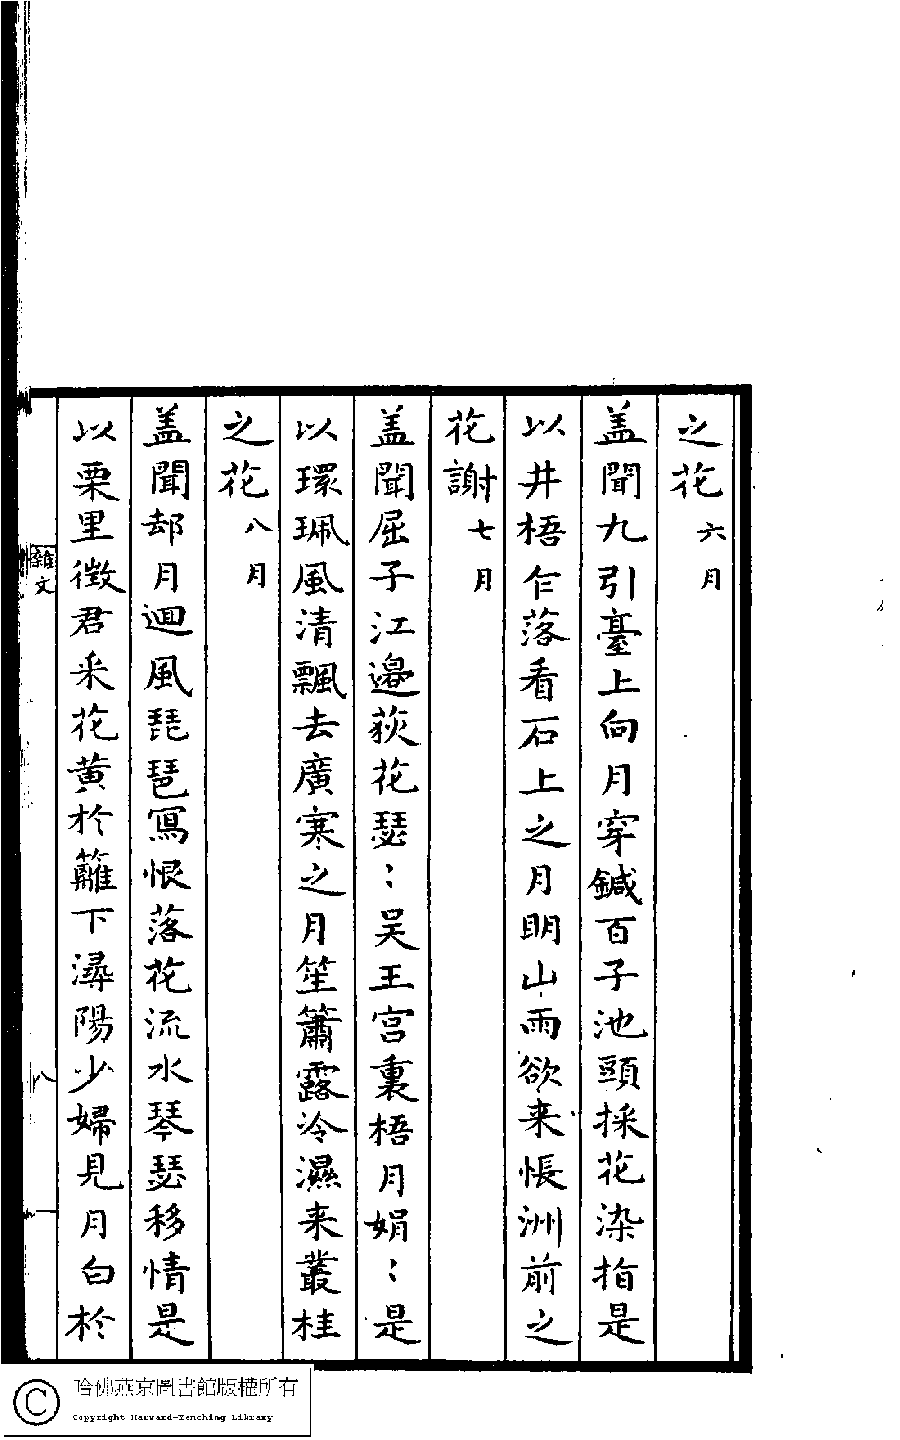 之花六月
盖聞九引臺上向月穿鍼百子池頭採花染指是
以井梧乍落看石上之月明山雨欲来悵洲前之
花謝七月
盖聞屈子江邉荻花瑟〻吴王宫裏梧月娟〻是
以環珮風清飄去廣寒之月笙簫露冷濕来叢桂
之花八月
盖聞却月迴風琵琶寫恨落花流水琴瑟移情是
以栗里徵君采花黄於籬下潯陽少婦見月白於
雜文
八
哈佛燕京圖書館版權所有
Copyright Harvard-Yenching Library